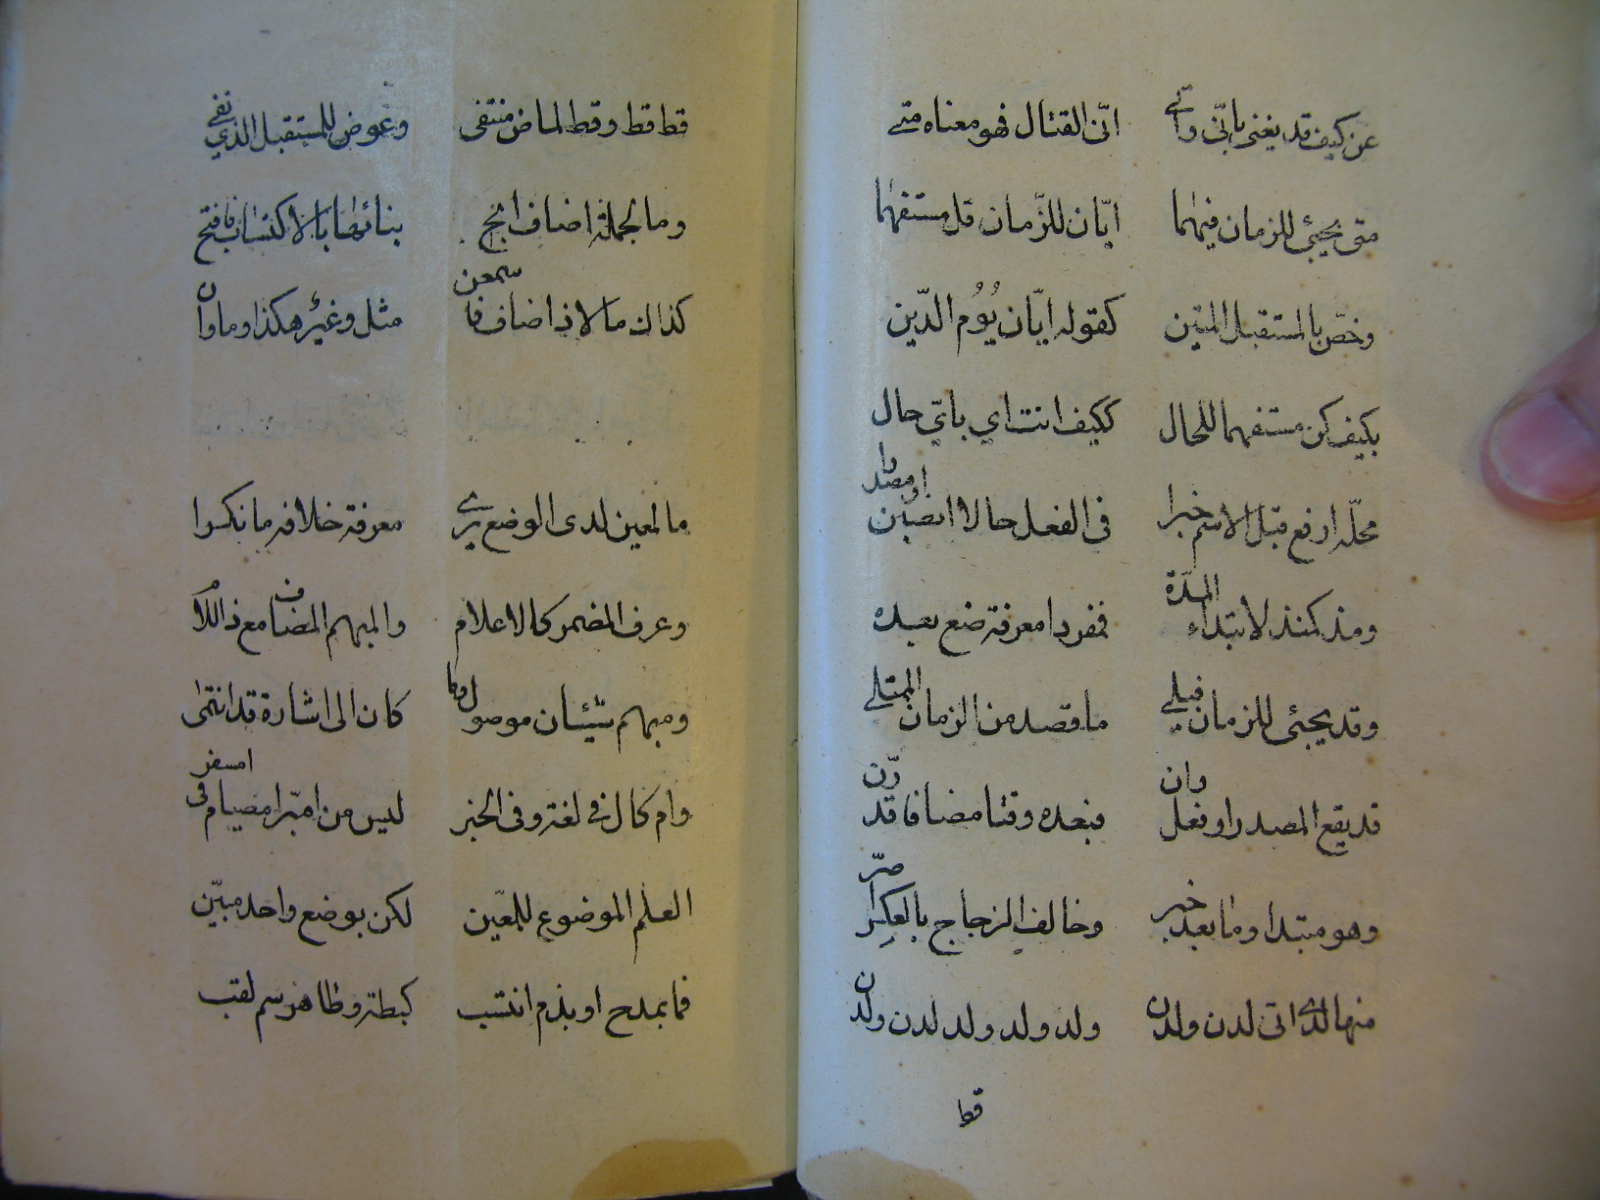 عن كيف قد يغنى بانّى واتى انّى القتال فهو معناه متى
متى يجيئ للزمان فيهما ايّان للزّمان قل مستفهما
وخصّ بالمستقبل المتين كقوله ايّان يوم الدّين
بكيف كن مستفهما للحال ككيف انت اي باىّ حال
محلّه ارفع قبل الاسم خبرا فى الفعل حالا انصبن او مصدرا
ومذ كمنذ لابتداء المدّة فمفردا معرفة ضع بعده
وقد يجئى للزمان فيلي ما قصد من الزمان الممتلي
قد يقع المصدر او فعل وان فبعده وقتا مضافا قدّرن
وهو مبتدا وما بعد خبر وخالف الزجاج بالعكس
منها لدى اتى لدن ولدن ولد ولد ولد لدن ولدن
قط
قط قط وقط لماض منتفى وعوض للمستقبل الذي نفي
وما لجملة اضاف ابح بنائها بالاكتساب فافتح
كذاك ما لاذ اضاف فاسمعن مثل وغير هكذا وما وان
ما لمعين لدى الوضع يرى معرفة خلافه ما نكرا
وعرف المضمر كالاعلام والمبهم المضاف مع ذا اللام
ومبهم شيئان موصول وما كان الى اشارة قد انتمى
وام كال فى لغة وفى الخبر ليس من امبرا مصيام فى امسفر
العلم الموضوع للمعيّن لكن بوضع واحد مبيّن
فما بمدح او بذم انتسب كبطة وطاهر سم لقب